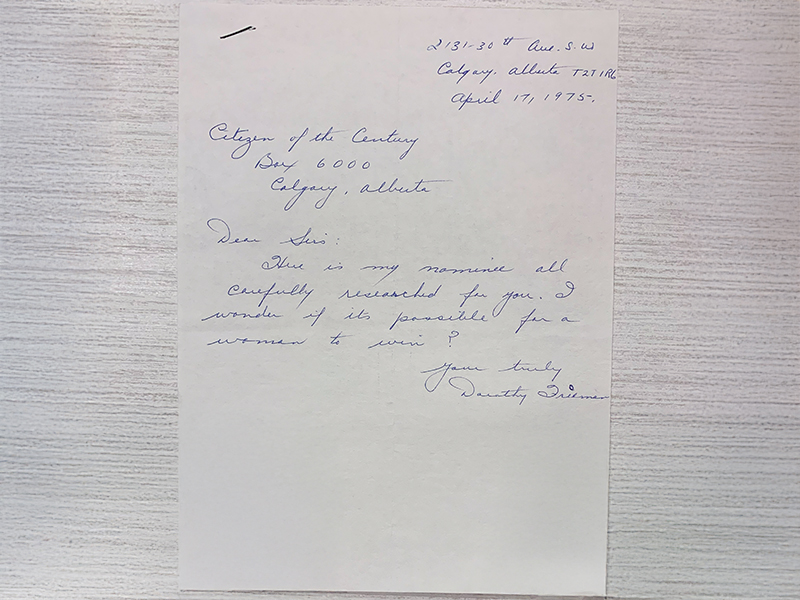 2131-30th Ave. S.W
Calgary, Alberta T2T 1R6
April 17, 1975.
Citizen of the Century
Box 6000
Calgary, Alberta
Dear Sirs:
Here is my nominee all
carefully researched for you. I
wonder if its possible for a
woman to win?
Yours truly
Dorothy